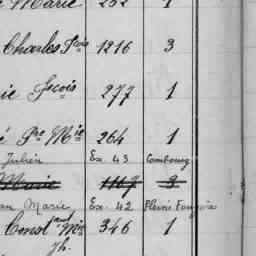 Marie 232 1
Charles Fcois 1216 3
ie Fscois 277 1
é Pre Mie 264 1
Julien Ex. 43 Combourg
Marie 1167 3
an Marie Ex. 42 Pleine Fougère
Cmot 346 1
Jh.